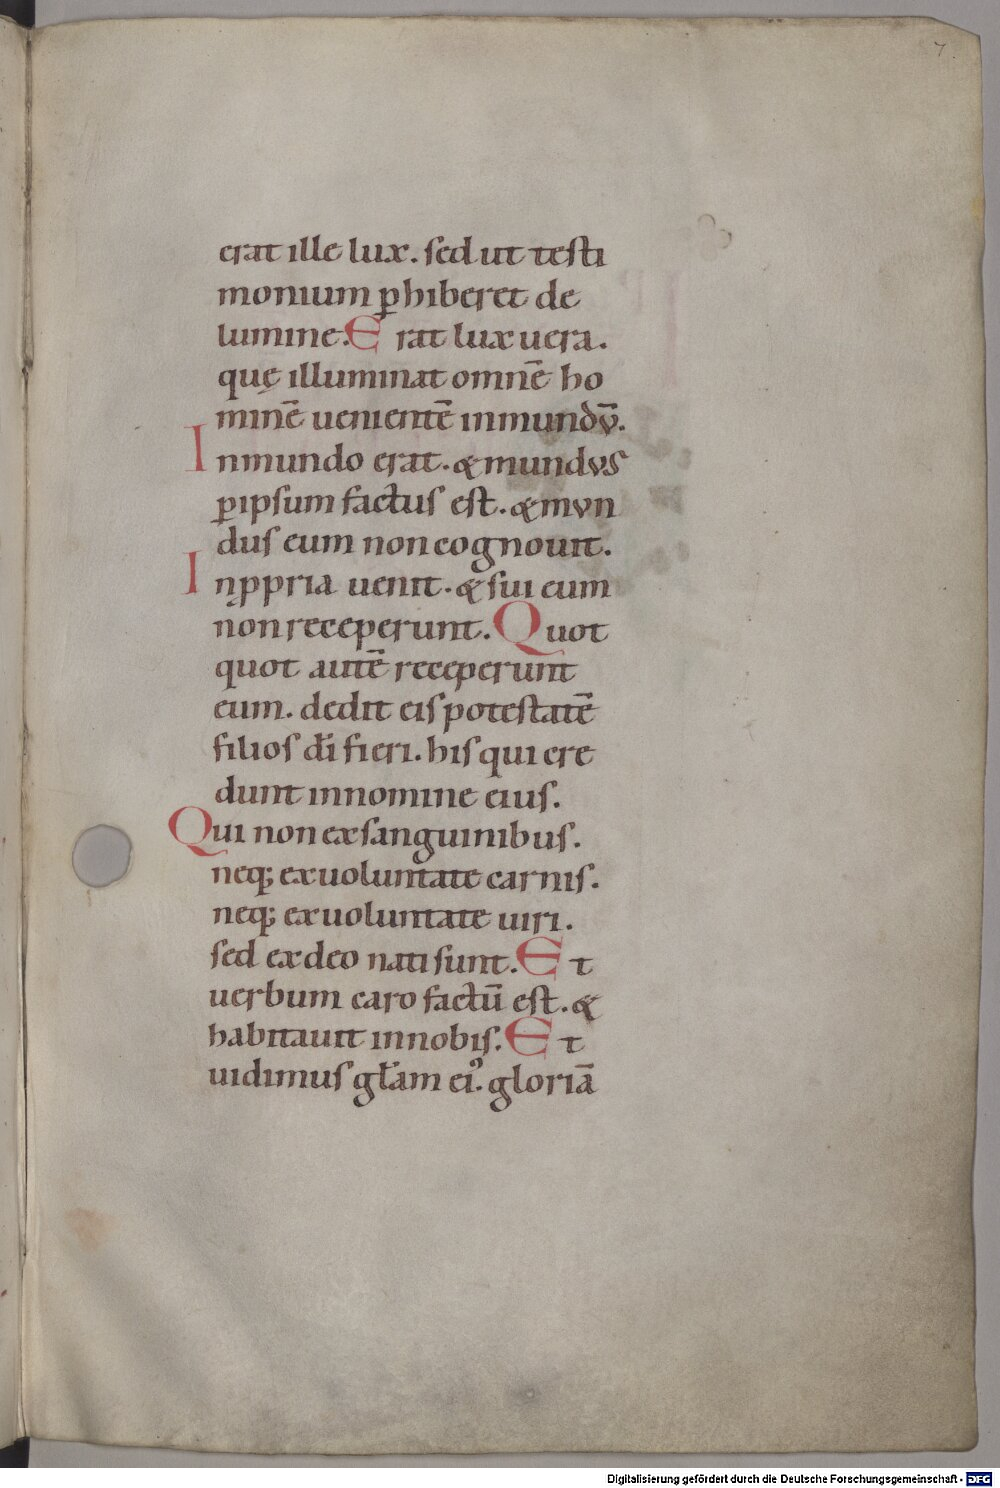 7
erat ille lux. sed ut testi
monium ꝑhiberet de
lumine. Erat lux uera.
quę illuminat omnē ho
minē uenientē inmundū.
Inmundo erat. & mundus
ꝑipsum factus est. & mun
dus eum non cognouit.
Inꝓpria uenit. & sui eum
non receperunt. Quot
quot autē receperunt
eum. dedit eis potestatē
filios dī fieri. his qui cre
dunt innomine eius.
Qui non exsanguinibus.
neq; exuoluntate carnis.
neq; exuoluntate uiri.
sed exdeo nati sunt. Et
uerbum caro factū est. &
habitauit innobis. Et
uidimus gƚam eiꝰ. gloriā
Digitalisierung gefördert durch die Deutsche Forschungsgemeinschaft - DFG